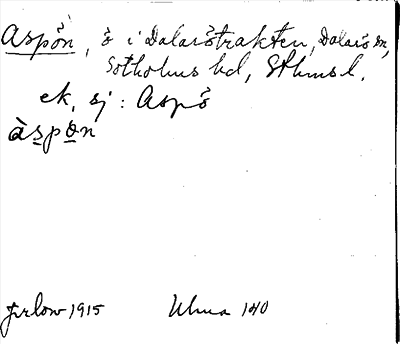 Aspön, ö i Dalarötrakten, Dalarö sn,
Sotholms hd, Sthms l.
ek, sj: Aspö
àspøn
1915
140